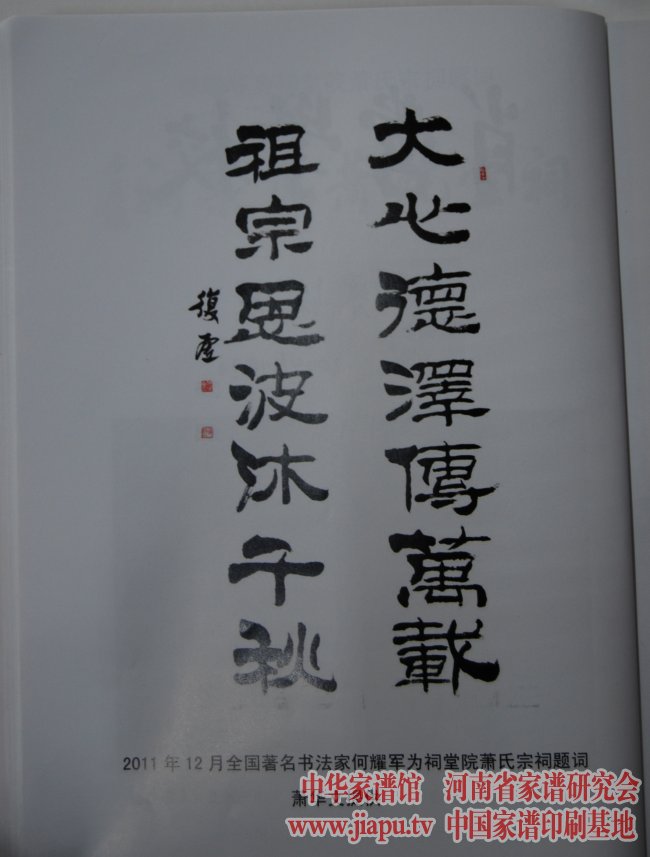 大心德澤傳萬載
祖宗恩波沐千秋
復產
2011年12月全国著名书法家何耀军为祠堂院萧氏宗祠题词
中华家谱馆 河南省家谱研究会
www.jiapu.tv 中国家谱印刷基地